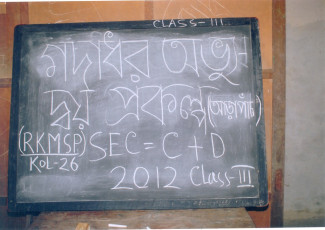 CLASS-III
গদাধর অভ্যু-
দয় প্রকল্প
(RKMSP) SEC = C + D
KOL-26
2012 Class-III